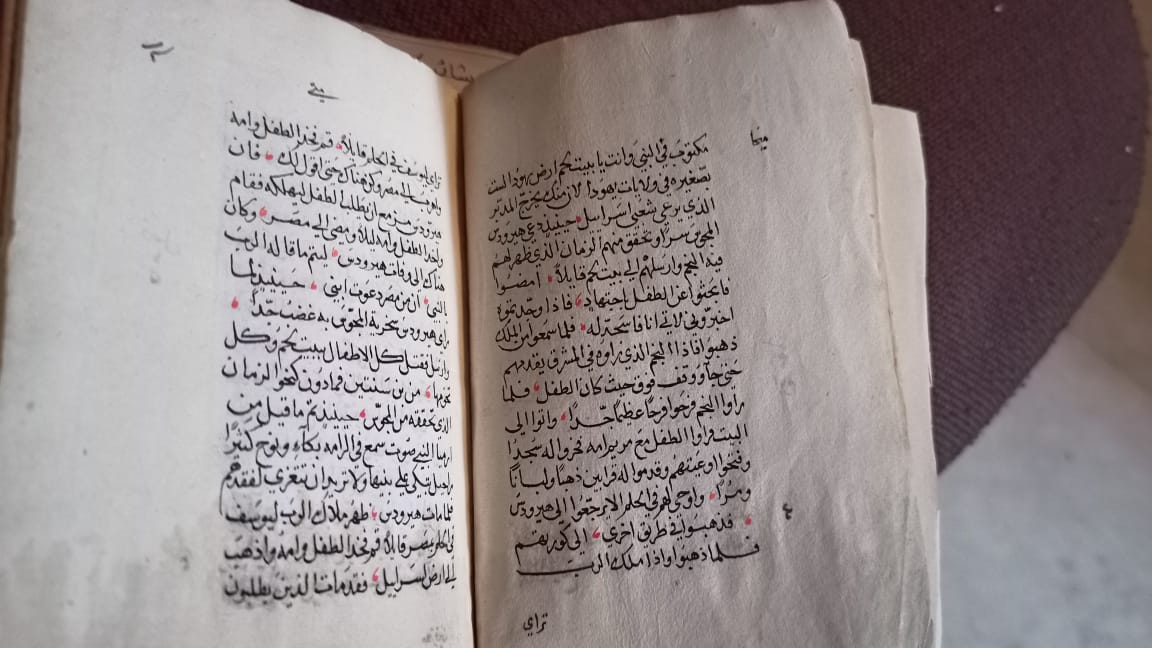 مكتوب في النبي وانت يا بيت لحم ارض يهودا لست
بصغيره في ولايات يهودا لان منك يخرج المدبر
الذي يرعي شعبي اسراييل حينيذ دعي هيرودس
المجوس سرًا وتحقق منهم الزمان الذي ظهر لهم
فيه النجم وارسلهم الي بيت لحم قايلاً امضوا
فابحثوا عن الطفل باجتهاد فاذا وجدتموه
اخبروني لاتي انا فاسجد له فلما سمعوا من الملك
ذهبوا فاذا النجم الذي راوه في المشرق يقدمهم
حتي جا ووقف فوق حيث كان الطفل فلما
راوا النجم فرحوا فرحًا عظيمًا جدًا واتوا الي
البيت فراوا الطفل مع مريم امه فخروا له سجدًا
وفتحوا اوعيتهم وقدموا له قرابين ذهبًا ولبانًا
ومرًا واوحي لهم في الحلم الا يرجعوا الي هيرودس
فذهبوا في طرق اخري الي كورتهم
فلما ذهبوا واذا ملك الرب
تراي
متي
تراي ليوسف في الحلم قايلاً قم فخد الطفل وامه
واهرب الي مصر وكن هناك حتي اقول لك فان
هيرودس مزمع ان يطلب الطفل ليهلكه فقام
واخد الطفل وامه ليلاً ومضي الي مصر وكان
هناك الي وفات هيرودس ليتم ما قاله الرب
بالنبي ان من مصر دعوت ابني حينيذ لما
راي هيرودس سخرية المجوس به غضب جدًا
وارسل فقتل كل الاطفال ببيت لحم وكل
تخومها من بن سنتين فمادون كنحو الزمان
الذي تحققه من المجوس حينيذ تم ما قيل من
ارميا النبي صوت سمع في الرامه بكاء ونوح كثيرًا
راحيل تبكي علي بنيها ولا تريد ان تتعزي لفقدهم
فلما مات هيرودس ظهر ملاك الرب ليوسف
في الحلم بمصر قايلاً قم فخد الطفل وامه واذهب
الي ارض اسراييل فقد مات الذين يطلبون